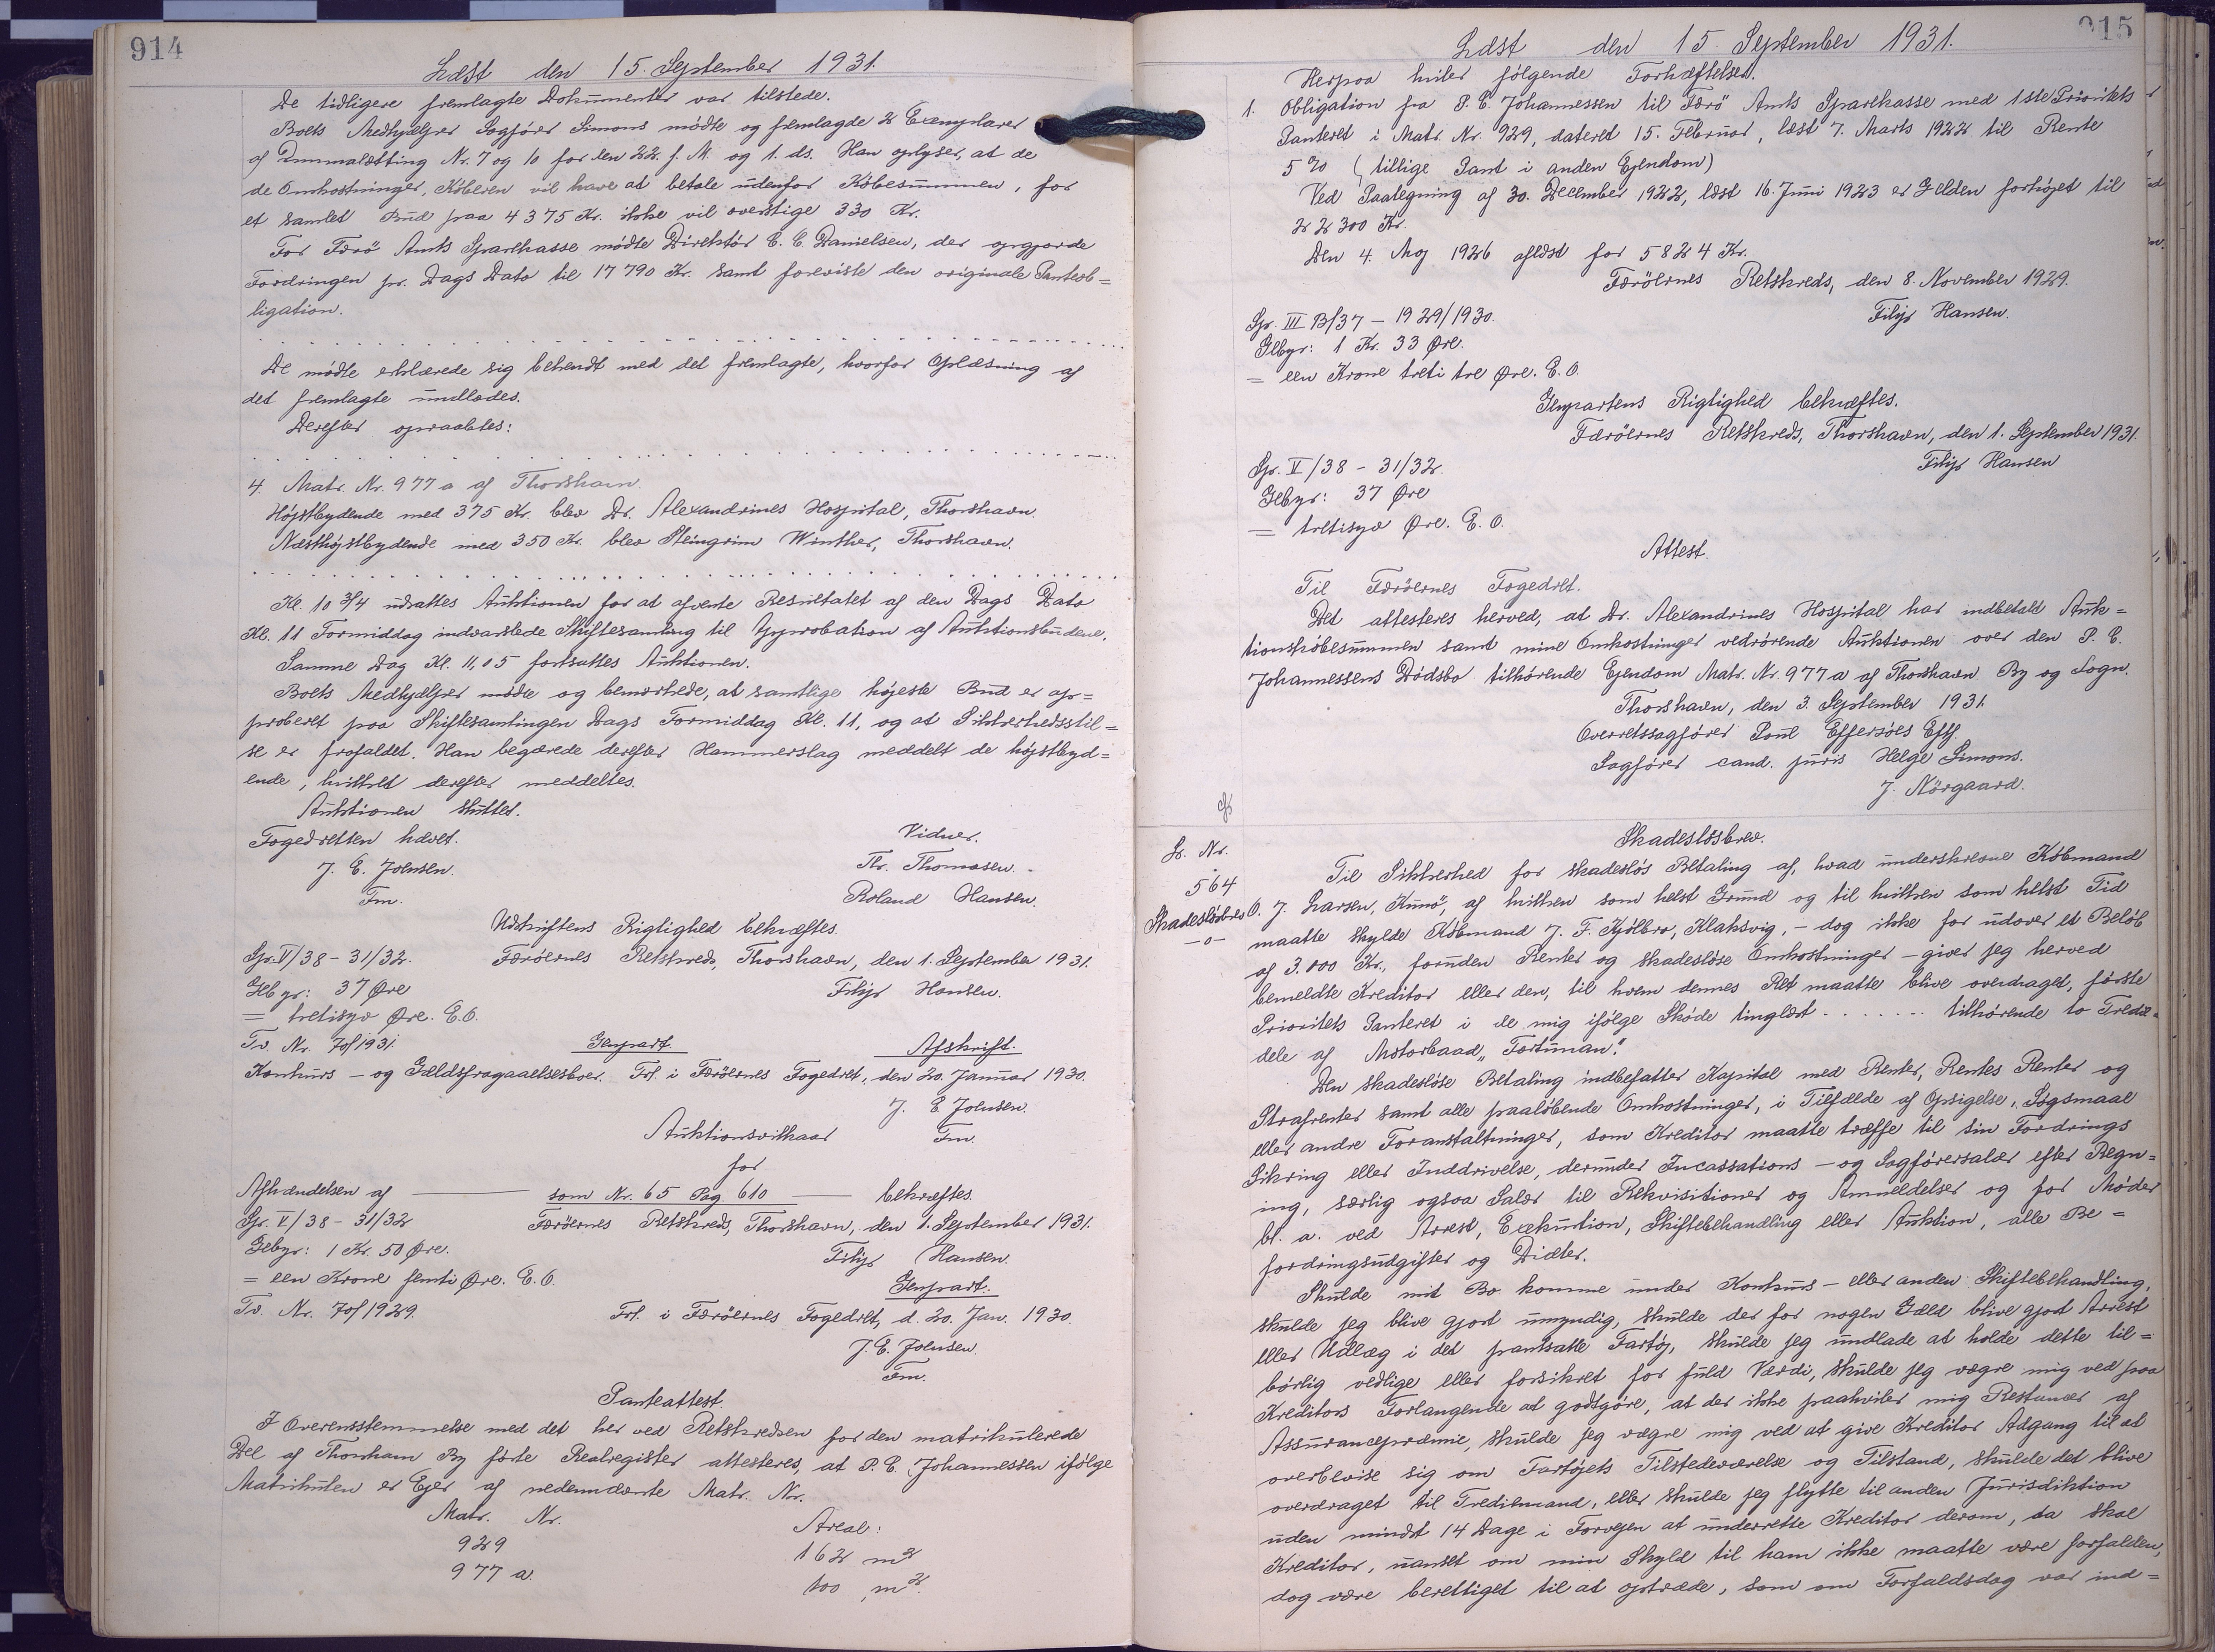 914
Læst den 15. September 1931.
De tidligere fremlagte Dokumenter var tilstede.
Boets Medhjælper Sagfører Simons mødte og fremlagde 2 Exemplarer
af Dimmalætting Nr. 7 og 10 for den 22. f. M. og 1. ds. Han oplyser, at de
de Omkostninger, Köberen vil have at betale udenfor Köbesummen, for
et samlet Bud paa 4375 Kr. ikke vil overstige 330 Kr.
For Færö Amts Sparekasse mödte Direktör C. C. Danielsen, der opgjorde
Fordringen pr. Dags Dato til 17790 Kr. samt foreviste den originale Panteob=
ligation.
De mödte erklærede sig bekendt med det fremlagte, hvorfor Oplæsning af
det fremlagte undlodes.
Derefter opraabtes:
4. Matr. Nr. 977 a af Thorshavn.
Höjstbydende med 375 Kr. blev Dr. Alexandrines Hospital, Thorshavn.
Næsthöjstbydende med 350 Kr. blev Steingrim Winther, Thorshavn.
Kl. 10 3/4 udsattes Auktionen for at afvente Resultatet af den Dags Dato
Kl. 11 Formiddag indvarslede Skiftesamling til Approbation af Auktionsbudene.
Samme Dag Kl. 11,05 fortsattes Auktionen.
Boets Medhjælper mödte og bemærkede, at samtlige höjeste Bud er ap=
proberet paa Skiftesamlingen Dags Formiddag Kl. 11, og at Sikkerhedsstil=
se er frafaldet. Han begærede derefter Hammerslag meddelt de höjstbyd=
ende, hvilket derefter meddeltes.
Auktionen sluttet.
Fogedretten hævet.
Vidner.
J. E. Joensen.
Thr. Thomasen.
Fm.
Roland Hansen.
Udskriftens Rigtighed bekræftes.
Sp. V/38 - 31/32.
Færöernes Retskreds, Thorshavn, den 1. September 1931.
Gebyr: 37 Øre
Filip Hansen.
= tretisyv Øre. E.O.
Tv. Nr. 7 of 1931.
Genpart.
Afskrift.
Konkurs - og Gældsfragaaelsesboer. Frl. i Færöernes Fogedret, den 20. Januar 1930.
J. E. Joensen.
Auktionsvilkaar
Fm.
for
Afhændelsen af
som Nr. 65 Pag. 610
bekræftes.
Sp. V/38 - 31/32
Færöernes Retskreds, Thorshavn, den 1. September 1931.
Gebyr: 1 Kr. 50 Øre.
Filip Hansen.
= een Krone femti Øre. E. O.
Genpart.
Tv. Nr. 7 of 1929.
Frl. i Færöernes Fogedret, d. 20. Jan. 1930.
J. E. Joensen.
Fm.
Panteattest.
I Overensstemmelse med det her ved Retskredsen for den matrikulerede
Del af Thorshavn By förte Realregister attesteres, at P. C. Johannessen ifölge
Matrikulen er Ejer af nedennævnte Matr. Nr.
Matr. Nr.
Areal:
929
162 m2
977 a.
100 m2.
915
Læst den 15. September 1931.
Herpaa hviler fölgende Forhæftelser.
1. Obligation fra P. C. Johannessen til Færö Amts Sparekasse med 1ste Prioritets
Panteret i Matr. Nr. 929, dateret 15. Februar, læst 7. Marts 1922 til Rente
5 % (tillige Pant i anden Ejendom)
Ved Paategning af 30. December 1922, læst 16. Juni 1923 er Gælden forhöjet til
22300 Kr.
Den 4. Maj 1926 aflöst for 5824 Kr.
Færöernes Retskreds, den 8. November 1929.
Sp. III B/37 - 1929/1930.
Filip Hansen.
Gebyr: 1 Kr. 33 Øre.
= een Krone treti tre Øre. E. O.
Genpartens Rigtighed bekræftes.
Færöernes Retskreds, Thorshavn, den 1. September 1931.
Sp. V/38 - 31/32.
Filip Hansen
Gebyr: 37 Øre
= tretisyv Øre. E. O.
Attest.
Til Færöernes Fogedret.
Det attesteres herved, at Dr. Alexandrines Hospital har indbetalt Auk=
tionsköbesummen samt mine Omkostninger vedrörende Auktionen over den P. C.
Johannessens Dödsbo tilhörende Ejendom Matr. Nr. 977 a af Thorshavn By og Sogn.
Thorshavn, den 3. September 1931.
Overretssagförer Poul Effersöes Eftf.
Sagförer cand. juris Helge Simons.
J. Nörgaard.
Skadeslösbrev.
L. Nr.
564
Skadeslösbrev
-o-
Til Sikkerhed for skadeslös Betaling af, hvad underskrevne Köbmand
O. J. Larsen, Kunö, af hvilken som helst Grund og til hvilken som helst Tid
maatte skylde Köbmand J. F. Kjölbro, Klaksvig, - dog ikke for udover et Belöb
af 3.000 Kr., foruden Renter og skadeslöse Omkostninger - giver jeg herved
bemeldte Kreditor eller den, til hvem dennes Ret maatte blive overdraget, förste
Prioritets Panteret i de mig ifölge Sköde tinglæst . . . . . . . tilhörende to Tredie=
dele af Motorbaad „Fortuman".
Den skadeslöse Betaling indbefatter Kapital med Renter, Rentes Renter og
Strafrenter samt alle paalöbende Omkostninger, i Tilfælde af Opsigelse, Sögsmaal
eller andre Foranstaltninger, som Kreditor maatte træffe til sin Fordrings
Sikring eller Inddrivelse, derunder Incassations - og Sagförersalær efter Regn=
ing, særlig ogsaa Salær til Rekvisitioner og Anmeldelser og for Möder
bl. a. ved Arrest, Exekution, Skiftebehandling eller Auktion, alle Be=
fordringsudgifter og Diæter.
Skulde mit Bo komme under Konkurs - eller anden Skiftebehandling,
skulde jeg blive gjort umyndig, skulde der for nogen Gæld blive gjort Arrest
eller Udlæg i det pantsatte Fartöj, skulde jeg undlade at holde dette til=
börlig vedlige eller forsikret for fuld Værdi, skulde jeg vægre mig ved paa
Kreditors Forlangende at godtgöre, at der ikke paahviler mig Restancer af
Assurancepræmie, skulde jeg vægre mig ved at give Kreditor Adgang til at
overbevise sig om Fartöjets Tilstedeværelse og Tilstand, skulde det blive
overdraget til Trediemand, eller skulde jeg flytte til anden Jurisdiktion
uden mindst 14 Dage i Forvejen at underrette Kreditor derom, da skal
Kreditor, uanset om min Skyld til ham ikke maatte være forfalden,
dog være berettiget til at optræde, som om Forfaldsdag var ind=